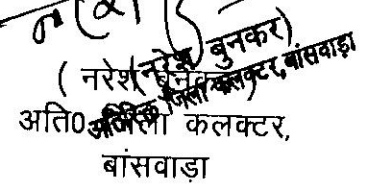 (नरेश बुनकर)
अतिरिक्त जिला कलक्टर, बांसवाड़ा
( नरेश बुनकर )
अति0 जिला कलक्टर,
बांसवाड़ा